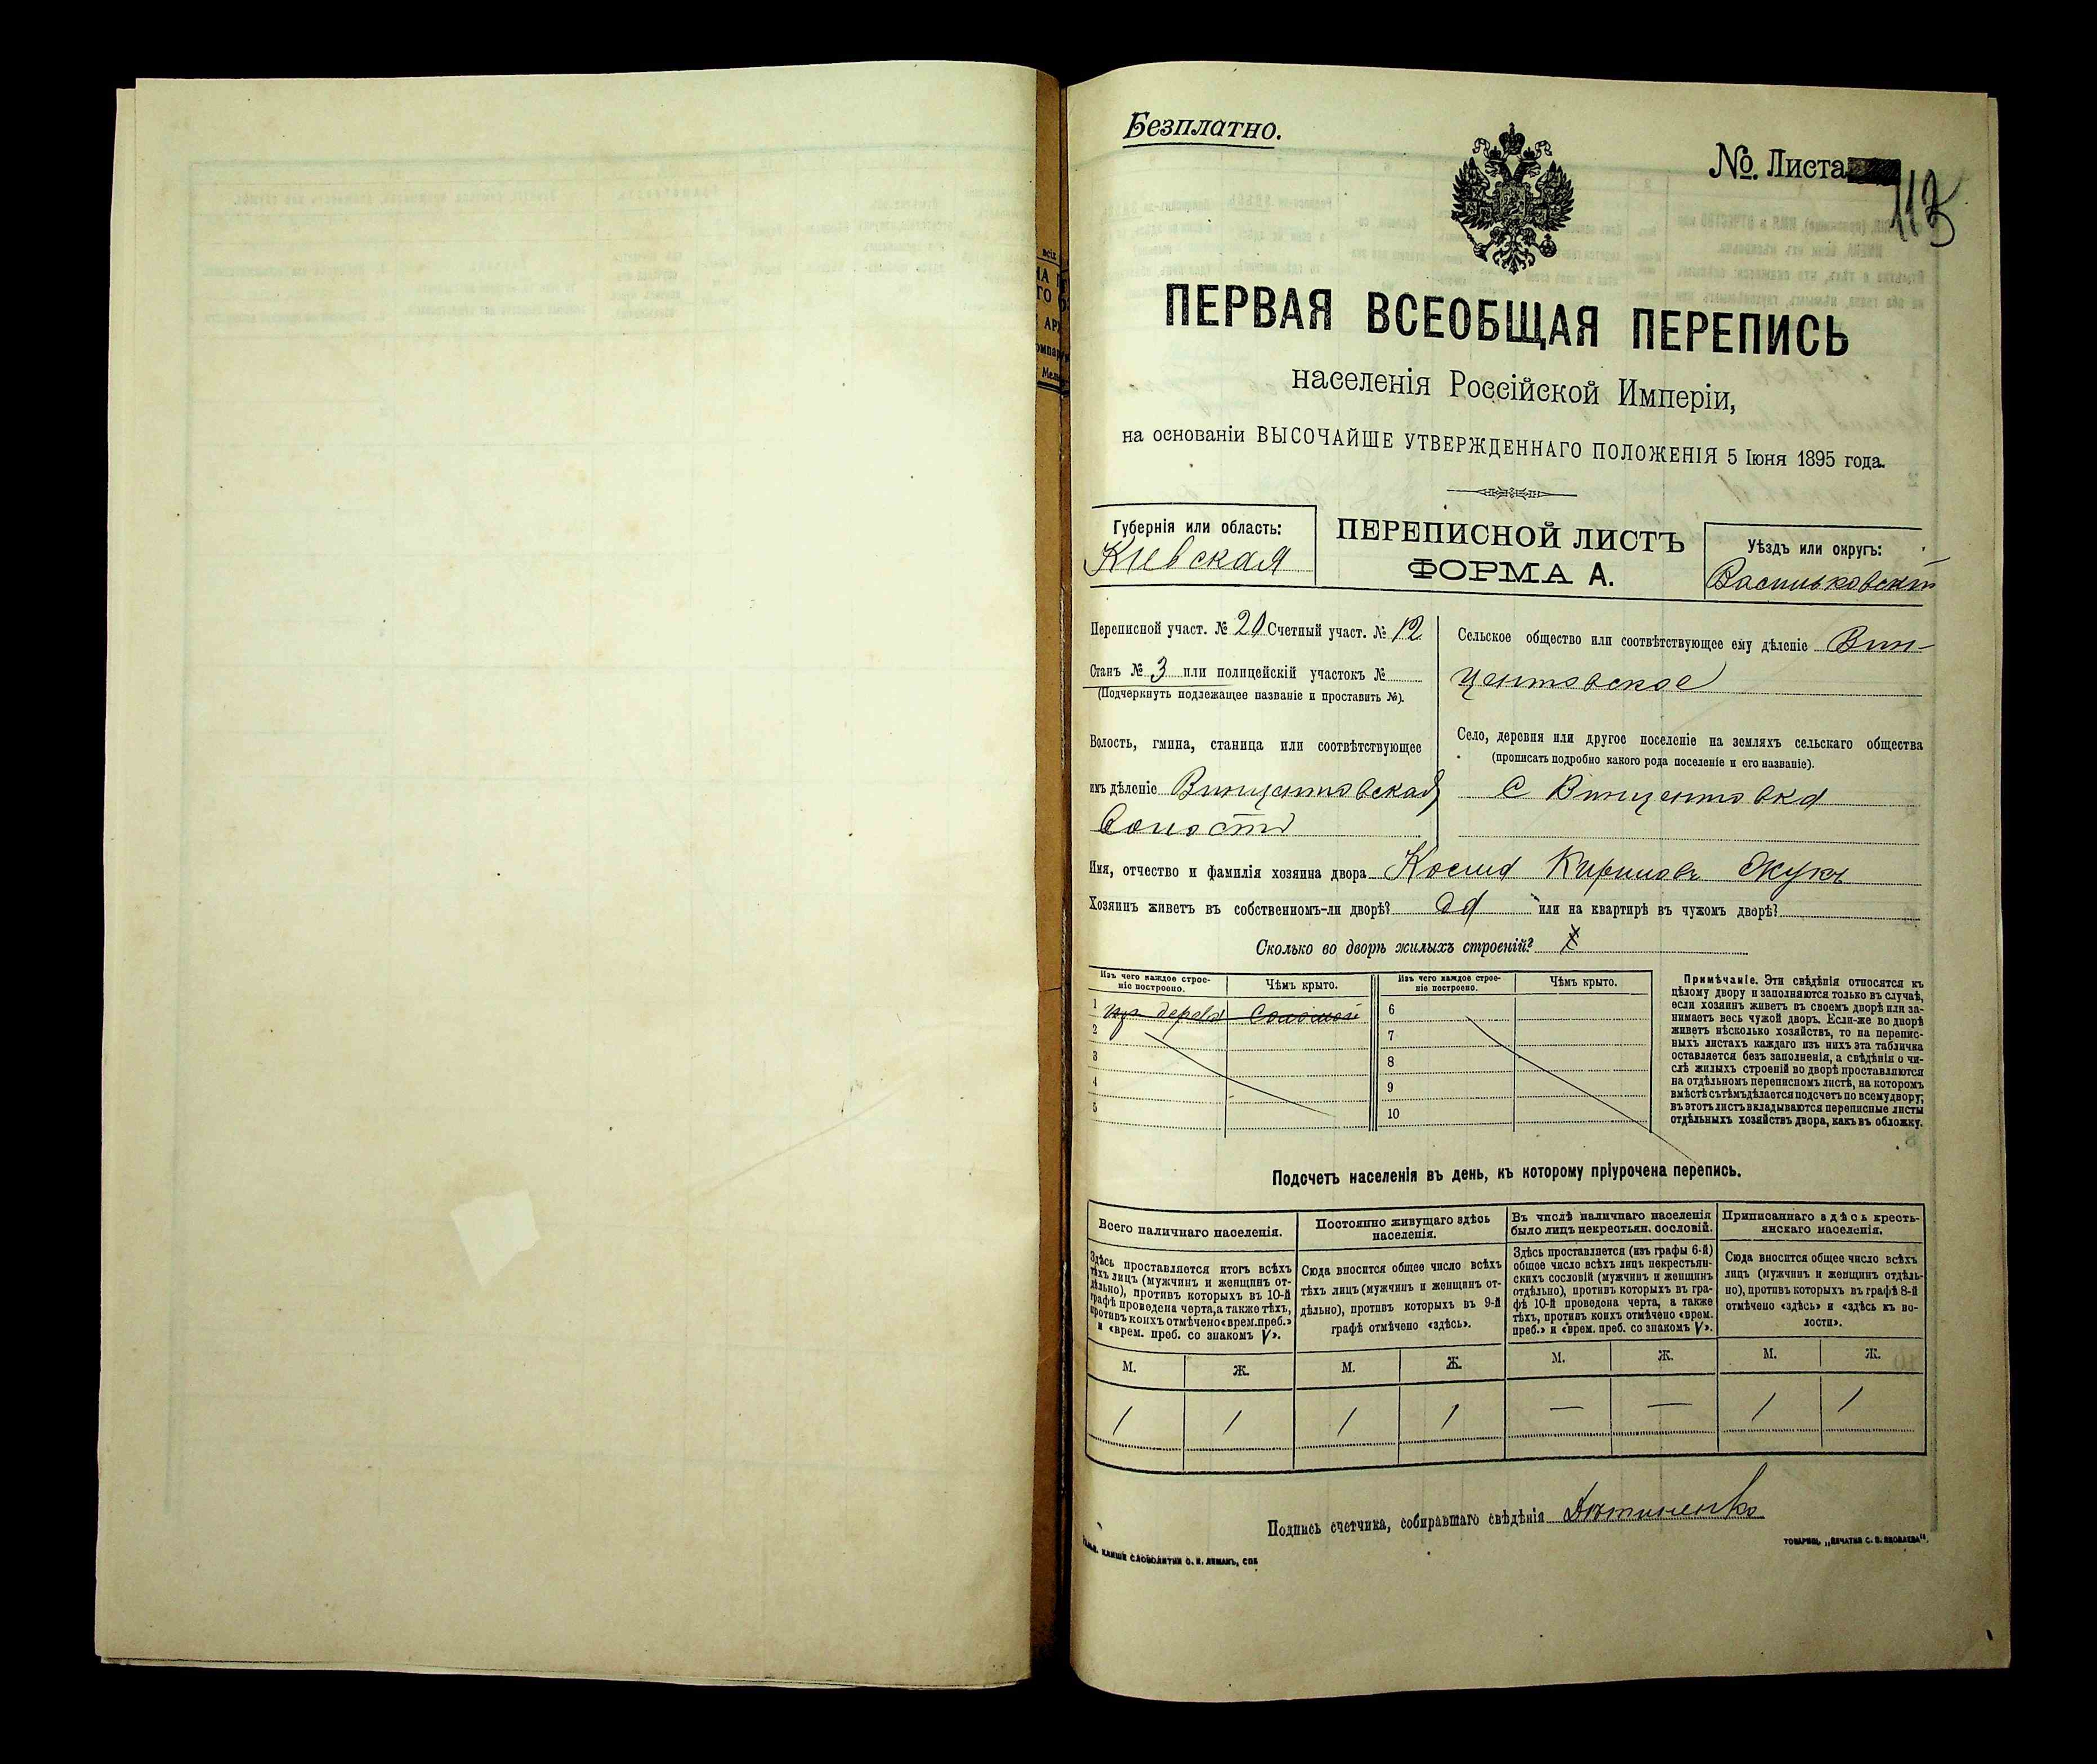 Безплатно.
№. Листа 113
ПЕРВАЯ ВСЕОБЩАЯ ПЕРЕПИСЬ
населенія Россійской Имперіи,
на основаніи ВЫСОЧАЙШЕ УТВЕРЖДЕННАГО ПОЛОЖЕНІЯ 5 Іюня 1895 года.
Губернія или область:
Киевская
ПЕРЕПИСНОЙ ЛИСТЪ
ФОРМА А.
Уѣздъ или округъ:
Васильковскій
Переписной участ. № 20 Счетный участ. № 12
Станъ № 3 или полицейскій участокъ №
(Подчеркнуть подлежащее названіе и проставить №).
Волость, гмина, станица или соотвѣтствующее
имъ дѣленіе Винцентовская
Волость
Сельское общество или соотвѣтствующее ему дѣленіе Вин-
центовское
Село, деревня или другое поселеніе на земляхъ сельскаго общества
(прописать подробно какого рода поселеніе и его названіе).
С Винцентовка
Имя, отчество и фамилія хозяина двора Косма Кириловъ Жукъ
Хозяинъ живетъ въ собственномъ-ли дворѣ? да или на квартирѣ въ чужомъ дворѣ?
Сколько во дворѣ жилыхъ строеній?
Изъ чего каждое строе-
ніе построено.
Чѣмъ крыто.
Изъ чего каждое строе-
ніе построено.
Чѣмъ крыто.
1 изъ дерева Соломой
2
3
4
5
6
7
8
9
10
Примѣчаніе. Эти свѣдѣнія относятся къ
цѣлому двору и заполняются только въ случаѣ,
если хозяинъ живетъ въ своемъ дворѣ или за-
нимаетъ весь чужой дворъ. Если-же во дворѣ
живетъ нѣсколько хозяйствъ, то на перепис-
ныхъ листахъ каждаго изъ нихъ эта табличка
оставляется безъ заполненія, а свѣдѣнія о чи-
слѣ жилыхъ строеній во дворѣ проставляются
на отдѣльномъ переписномъ листѣ, на которомъ
вмѣстѣ съ тѣмъ дѣлается подсчетъ по всему двору;
въ этотъ листъ вкладываются переписные листы
отдѣльныхъ хозяйствъ двора, какъ въ обложку.
Подсчетъ населенія въ день, къ которому пріурочена перепись.
Всего наличнаго населенія.
Здѣсь проставляется итогъ всѣхъ
тѣхъ лицъ (мужчинъ и женщинъ от-
дѣльно), противъ которыхъ въ 10-й
графѣ проведена черта, а также тѣхъ,
противъ коихъ отмѣчено «врем. преб.»
и «врем. преб. со знакомъ V».
Постоянно живущаго здѣсь
населенія.
Сюда вносится общее число всѣхъ
тѣхъ лицъ (мужчинъ и женщинъ от-
дѣльно), противъ которыхъ въ 9-й
графѣ отмѣчено «здѣсь».
Въ числѣ наличнаго населенія
было лицъ некрестьян. сословій.
Здѣсь проставляется (изъ графы 6-й)
общее число всѣхъ лицъ некрестьян-
скихъ сословій (мужчинъ и женщинъ
отдѣльно), противъ которыхъ въ гра-
фѣ 10-й проведена черта, а также
тѣхъ, противъ коихъ отмѣчено «врем.
преб.» и «врем. преб. со знакомъ V».
Приписаннаго здѣсь кресть-
янскаго населенія.
Сюда вносится общее число всѣхъ
лицъ (мужчинъ и женщинъ отдѣль-
но), противъ которыхъ въ графѣ 8-й
отмѣчено «здѣсь» и «здѣсь къ во-
лости».
М. Ж. М. Ж. М. Ж. М. Ж.
1 1 1 1 — — 1 1
Подпись счетчика, собиравшаго свѣдѣнія
КЛИШЕ СЛОВОЛИТНИ О. И. ЛЕМАНЪ, СПБ
ТОВАРИЩ. „ПЕЧАТНЯ С. П. ЯКОВЛЕВА“.